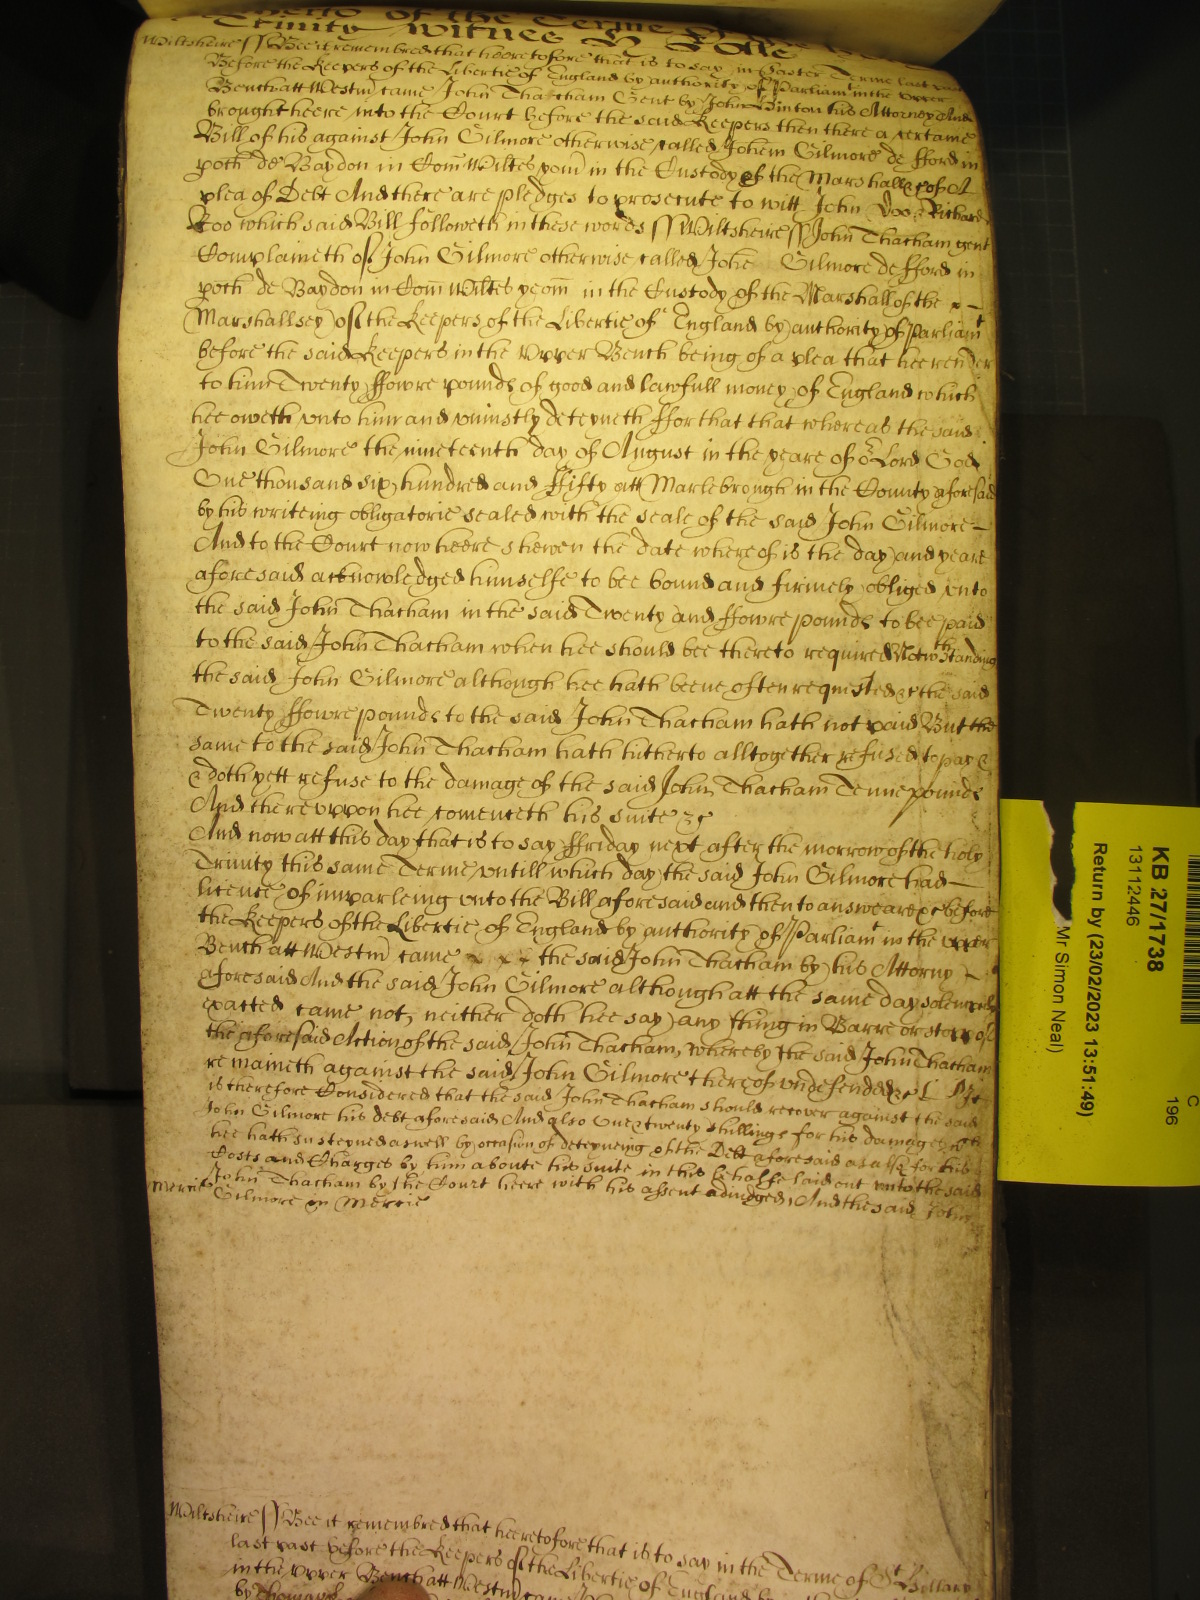 of the Terme of the
Trinity Witnes H Rolle
Wiltsheire ss Bee it remembred that heeretofore that is to say in Easter Terme last past
Before the Keepers of the Libertie of England by authority of Parliamt in the Upper
Bench att Westm came John Thacham Gent by John Vinton his Attorney And
brought heere into the Court before the said Keepers then there a certaine
Bill of his against John Gilmore otherwise called Johem Gilmore de fford in
poch de Baydon in Com Wiltes yom in the Custody of the Marshall &c of A
plea of Debt And there are pledges to prosecute to witt John Doo & Richard
Roo which said Bill followeth in these words ss Wiltsheire ss John Thacham gent
Complaineth of John Gilmore otherwise called Johe Gilmore de fford in
poch de Baydon in Com Wiltes yeom in the Custody of the Marshall of the
Marshallsey of the Keepers of the Libertie of England by authority of Parliamt
before the said Keepers in the Upper Bench being of a plea that hee render
to him Twenty ffowre pounds of good and lawfull money of England which
hee oweth vnto him and vniustly deteyneth ffor that that whereas the said
John Gilmore the nineteenth day of August in the yeare of or Lord God
One thousand six hundred and ffifty att Marlebrough in the County aforesaid
by his writeing obligatorie sealed with the seale of the said John Gilmore
And to the Court now heere shewen the date whereof is the day and yeare
aforesaid acknowledged himselfe to bee bound and firmely obliged vnto
the said John Thacham in the said Twenty and ffowre pounds to bee paid
to the said John Thacham when hee should bee thereto required Notwthstanding
the said John Gilmore although hee hath beene often requested &c the said
Twenty ffowre pounds to the said John Thacham hath not paid But the
same to the said John Thacham hath hitherto alltogether refused to pay &
& doth yett refuse to the damage of the said John Thacham Tenne pounds
And therevppon hee comenceth his suite &c
And now att this day that is to say ffriday next after the morrow of the holy
Trinity this same Terme vntill which day the said John Gilmore had
licence of imparleing vnto the Bill aforesaid and then to answeare &c before
the Keepers of the Libertie of England by authority of Parliamt in the vpper
Bench att Westm came the said John Thacham by his Attorny
aforesaid And the said John Gilmore although att the same day solemnely
exacted came not, neither doth hee say any thing in Barre or stopp of
the aforesaid Action of the said John Thacham, whereby the said John Thacham
remaineth against the said John Gilmore thereof vndefended &c [ It
is therefore Considered that the said John Thacham should recover against the said
John Gilmore his debt aforesaid And also One & twenty shillings for his damages
hee hath susteyned aswell by occasion of deteyneing of the Debt aforesaid as also for his
Costs and Charges by him aboute his suite in this behalfe laid out vnto the said
John Thacham by the Court heere with his assent adiudged, And the said John
Mercie
Gilmore in Mercie
Wiltsheire ss Bee it remembred that heeretofore that is to say in the Terme of St Hillary
last past before the Keepers of the Libertie of England by
in the vpper Bench att Westm came
by Thomas
C
196
KB 27/1738
13112446
Return by (23/02/2023 13:51:49)
Mr Simon Neal)